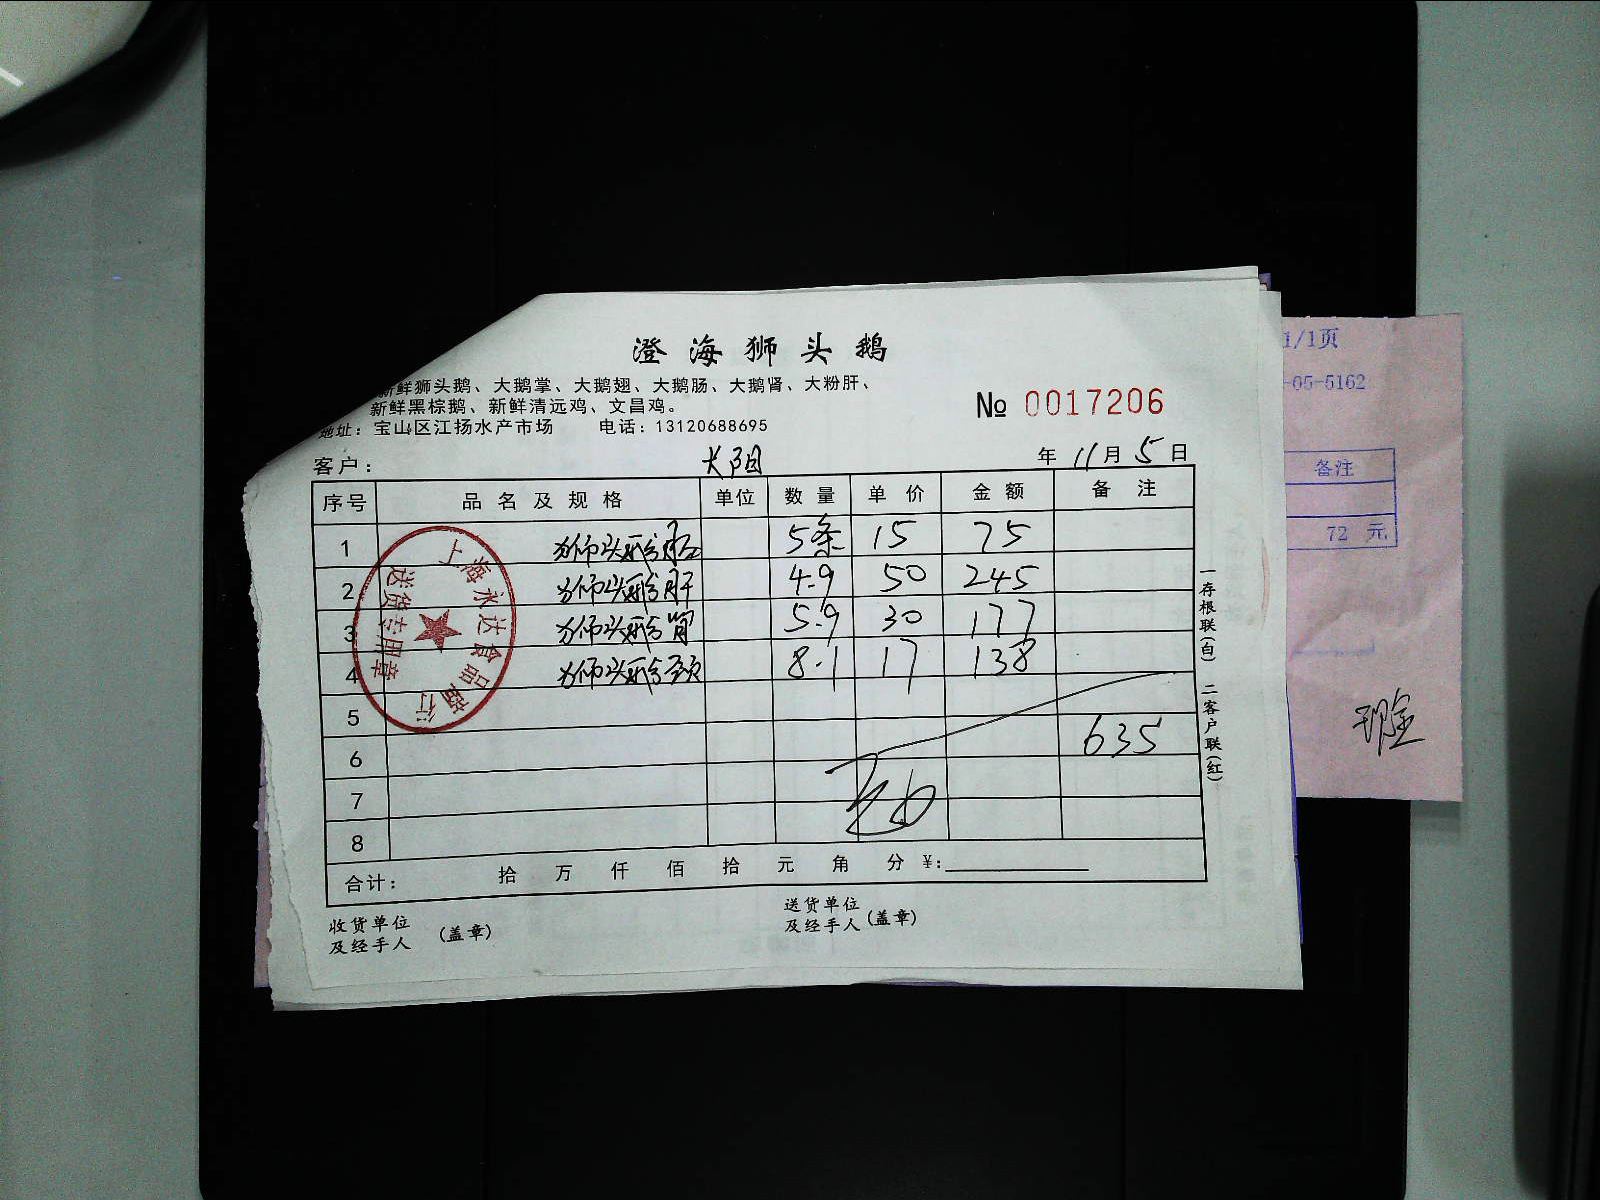 澄海狮头鹅
新鲜狮头鹅、大鹅掌、大鹅翅、大鹅肠、大鹅肾、大粉肝、
新鲜黑棕鹅、新鲜清远鸡、文昌鸡。
地址：宝山区江扬水产市场 电话：13120688695
№ 0017206
客户： 大阳 年 11月 5日
序号 品名及规格 单位 数量 单价 金额 备注
1 狮头鹅 5条 15 75
2 狮头鹅肝 4.9 50 245
3 狮头鹅肾 5.9 30 177
4 狮头鹅颈 8.1 17 138
5
6 635
7
8
合计： 拾 万 仟 佰 拾 元 角 分 ¥:
收货单位
及经手人 (盖章)
送货单位
及经手人 (盖章)
一存根联(白) 二客户联(红)
上海永达食品商行
送货专用章
1/1页
-05-5162
备注
72 元